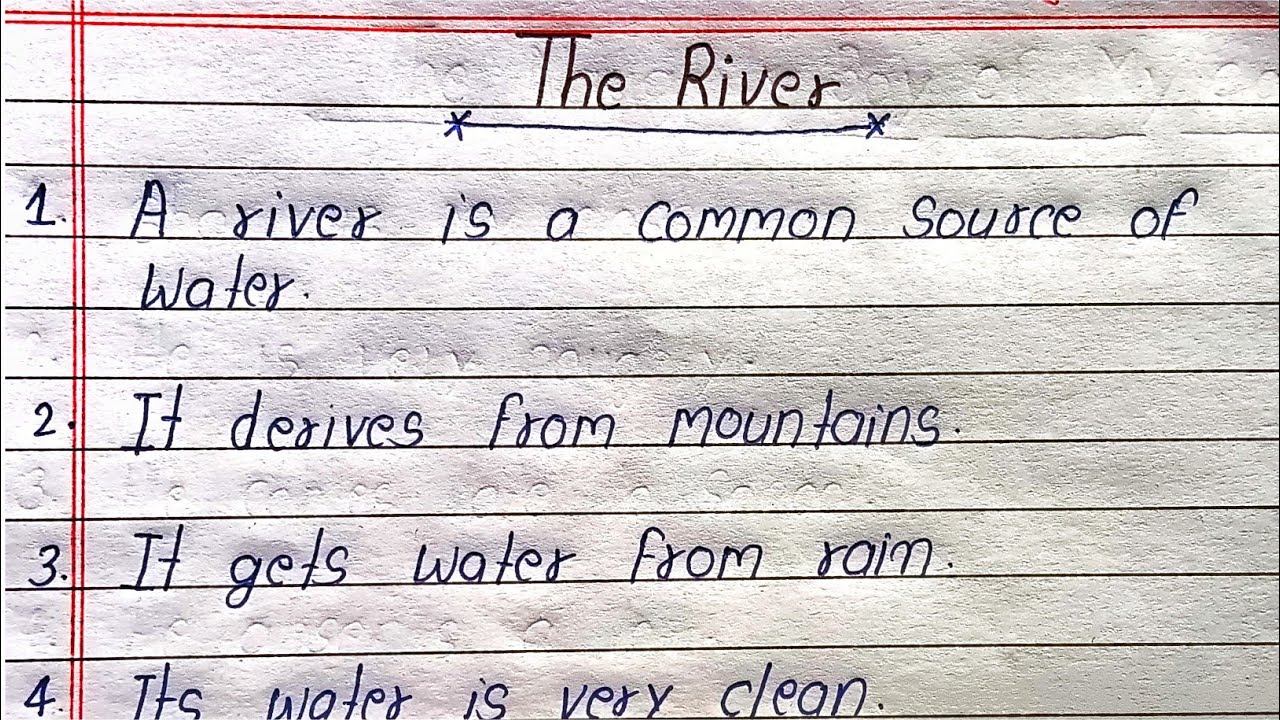 The River
1. A river is a common source of
water.
2. It derives from mountains.
3. It gets water from rain.
4. Its water is very clean.